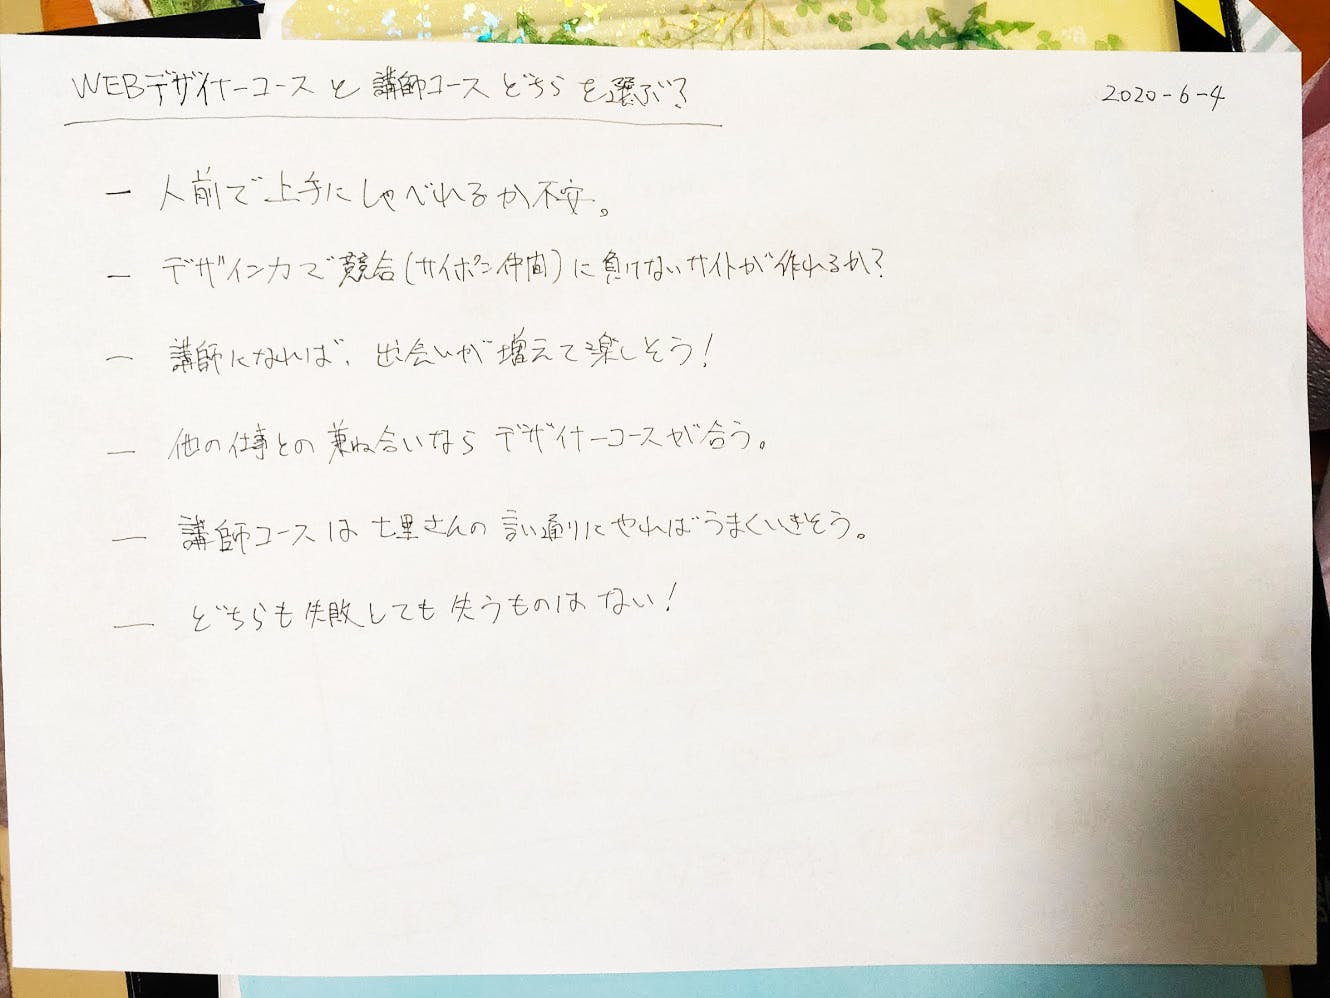 WEBデザイナーコースと講師コースどちらを選ぶ?
2020-6-4
一 人前で上手にしゃべれるか不安。
一 デザイン力で競合(サイポン仲間)に負けないサイトが作れるか?
一 講師になれば、出会いが増えて楽しそう!
一 他の仕事との兼ね合いならデザイナーコースが合う。
一 講師コースは七里さんの言い通りにやればうまくいきそう。
一 どちらも失敗しても失うものはない!